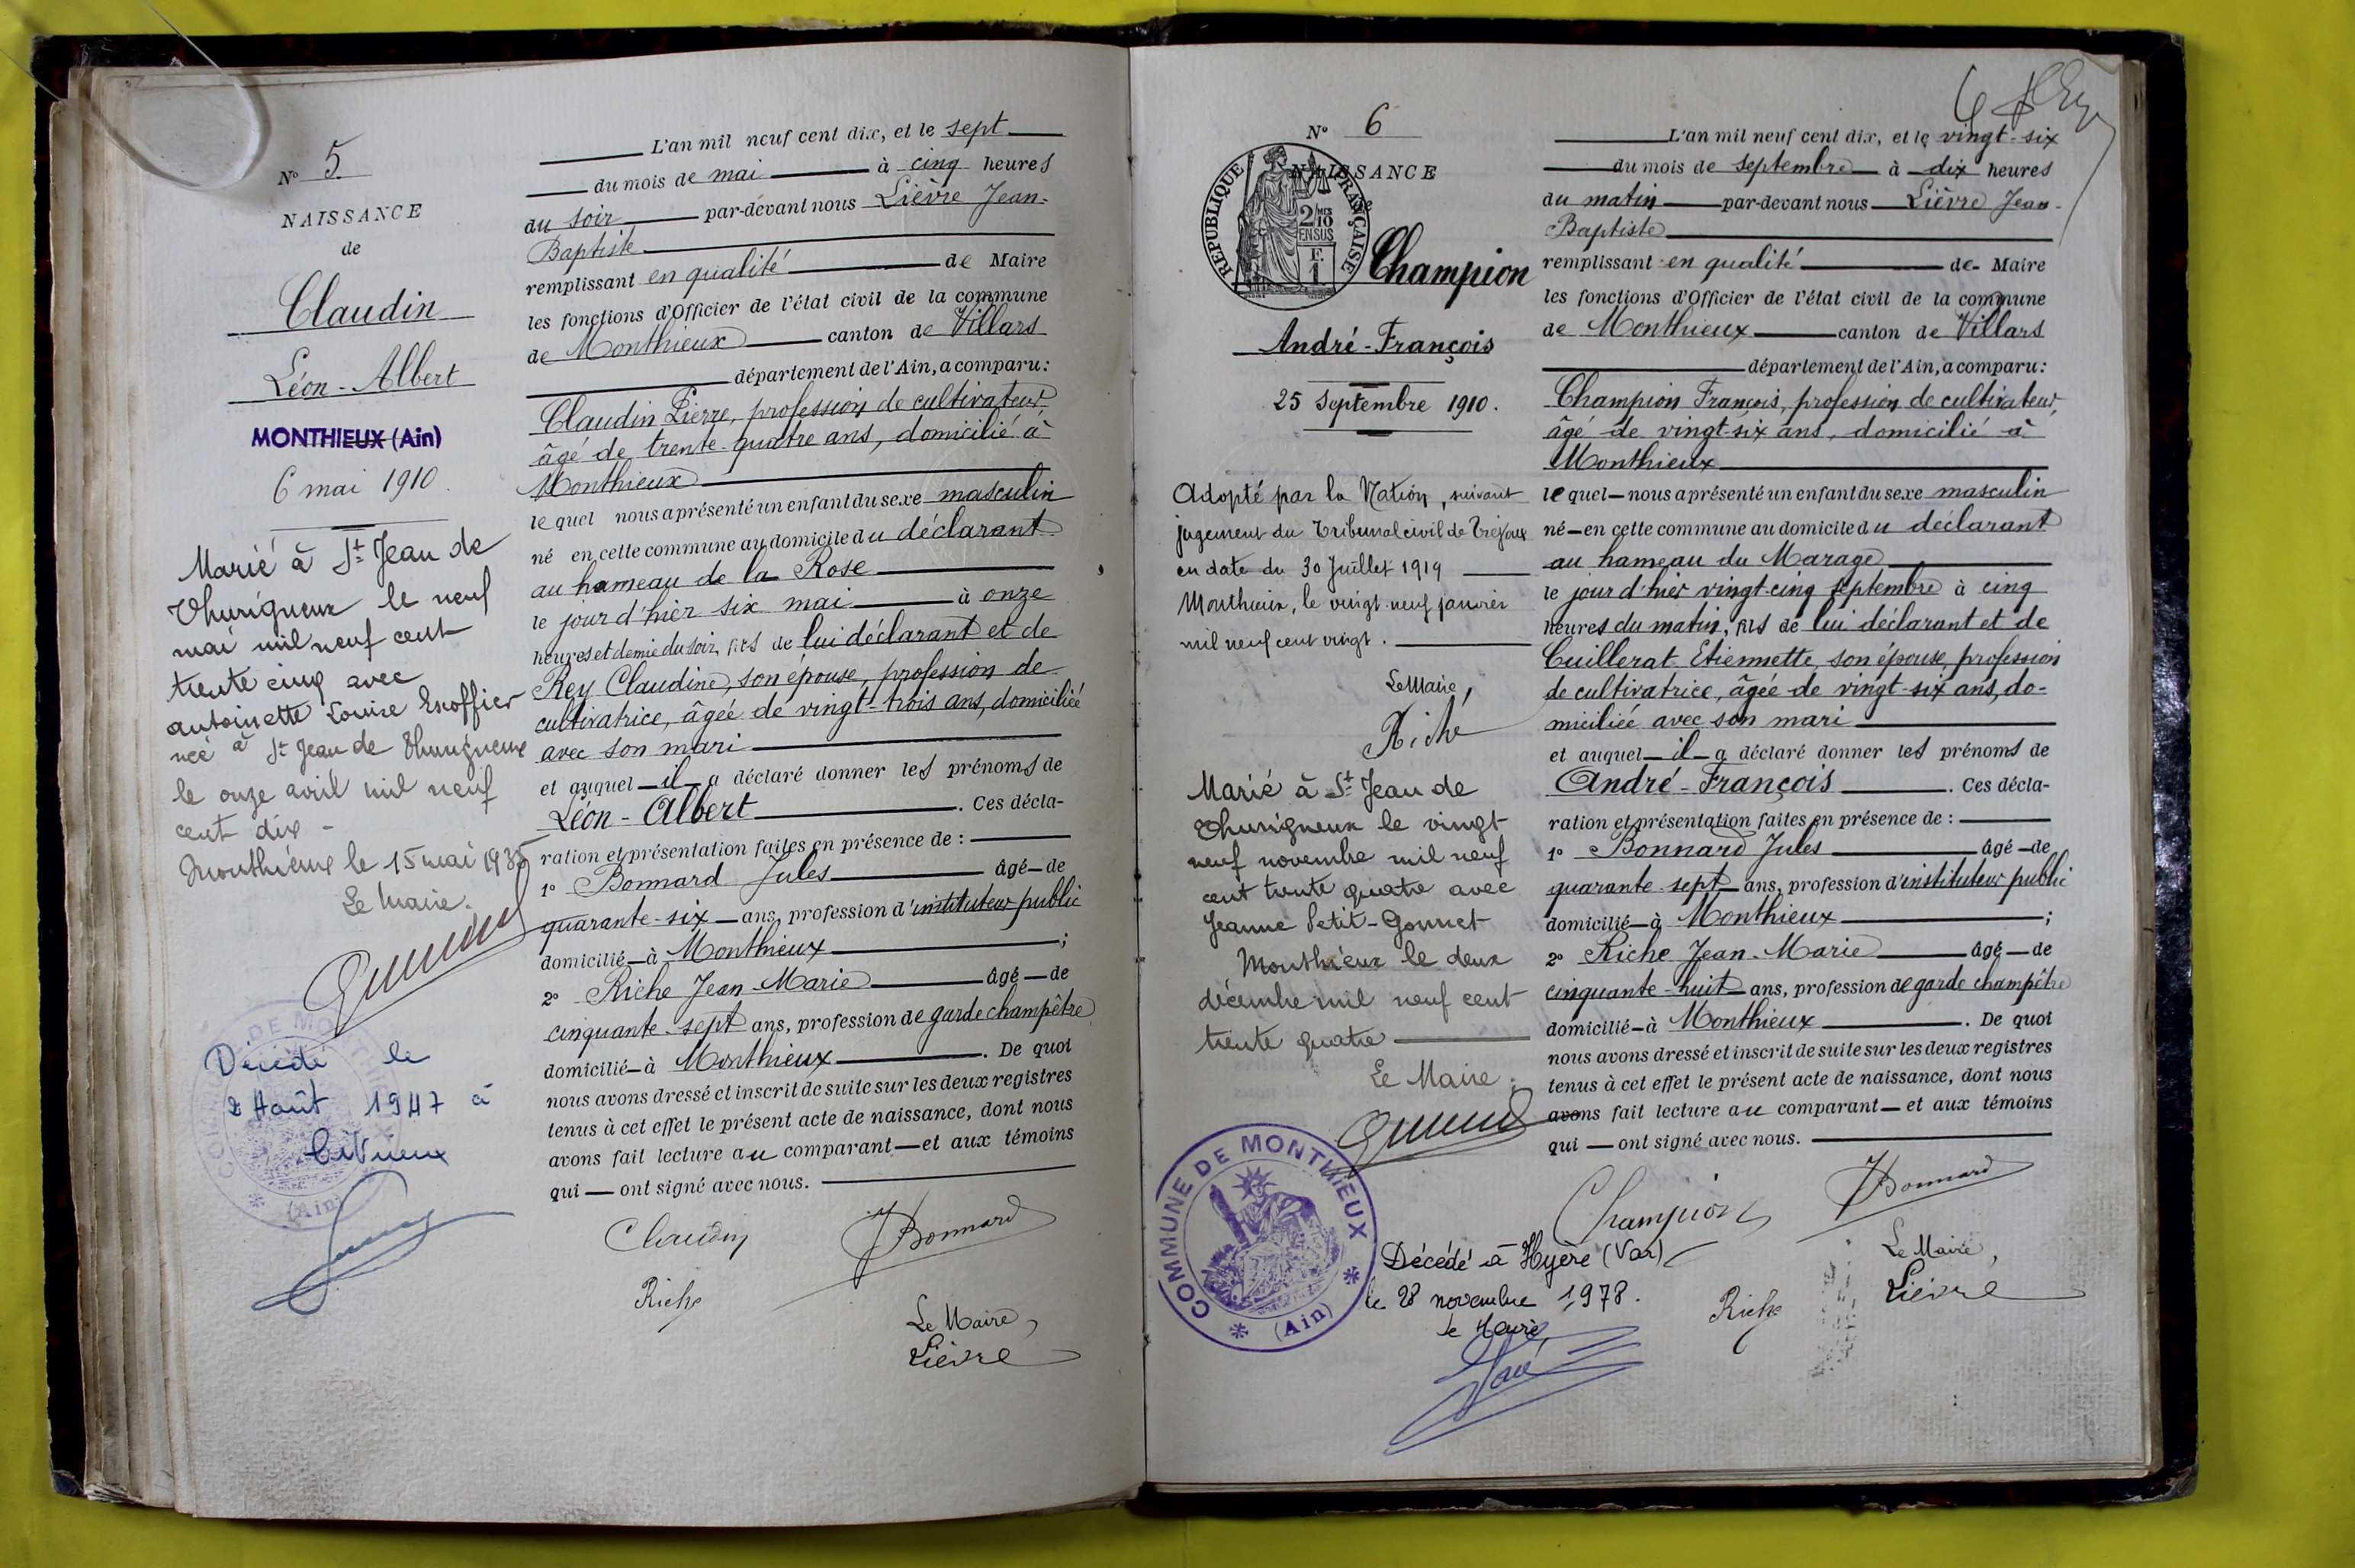 N° 5
NAISSANCE
de
Claudin
Léon-Albert
MONTHIEUX (Ain)
6 mai 1910.
Marié à St Jean de
Thurigneux le neuf
mai mil neuf cent
trente cinq avec
Antoinette Louise Escoffier
née à St Jean de Thurigneux
le onze avril mil neuf
cent dix -
Monthieux le 15 mai 1935
Le Maire.
Décédé le
2 Août 1947 à
Civrieux
L'an mil neuf cent dix, et le sept
du mois de mai à cinq heures
du soir par-devant nous Lièvre Jean-
Baptiste
remplissant en qualité de Maire
les fonctions d'Officier de l'état civil de la commune
de Monthieux canton de Villars
département de l'Ain, a comparu:
Claudin Pierre, profession de cultivateur,
âgé de trente-quatre ans, domicilié à
Monthieux
lequel nous a présenté un enfant du sexe masculin
né en cette commune au domicile du déclarant
au hameau de la Rose
le jour d'hier six mai à onze
heures et demie du soir, fils de lui déclarant et de
Rey Claudine, son épouse, profession de
cultivatrice, âgée de vingt-trois ans, domiciliée
avec son mari
et auquel il a déclaré donner les prénoms de
Léon-Albert. Ces décla-
ration et présentation faites en présence de :
1° Bonnard Jules âgé de
quarante-six ans, profession d'instituteur public
domicilié à Monthieux ;
2° Riche Jean-Marie âgé de
cinquante-sept ans, profession de garde champêtre
domicilié à Monthieux. De quoi
nous avons dressé et inscrit de suite sur les deux registres
tenus à cet effet le présent acte de naissance, dont nous
avons fait lecture au comparant et aux témoins
qui ont signé avec nous.
Claudin JBonnard
Riche
Le Maire,
Lièvre
N° 6
NAISSANCE
RÉPUBLIQUE FRANÇAISE
2/10 EN SUS
F. 1
Champion
André-François
25 Septembre 1910.
Adopté par la Nation, suivant
jugement du Tribunal civil de Trévoux
en date du 30 Juillet 1919
Monthieux, le vingt-neuf janvier
mil neuf cent vingt.
Le Maire,
Riche
Marié à St Jean de
Thurigneux le vingt
neuf novembre mil neuf
cent trente quatre avec
Jeanne Petit-Gonnet
Monthieux le deux
décembre mil neuf cent
trente quatre
Le Maire.
COMMUNE DE MONTHIEUX
(Ain)
L'an mil neuf cent dix, et le vingt-six
du mois de septembre à dix heures
du matin par-devant nous Lièvre Jean-
Baptiste
remplissant en qualité de Maire
les fonctions d'Officier de l'état civil de la commune
de Monthieux canton de Villars
département de l'Ain, a comparu:
Champion François, profession de cultivateur,
âgé de vingt-six ans, domicilié à
Monthieux
lequel nous a présenté un enfant du sexe masculin
né en cette commune au domicile du déclarant
au hameau du Marage
le jour d'hier vingt-cinq septembre à cinq
heures du matin, fils de lui déclarant et de
Cuillerat Etiennette, son épouse, profession
de cultivatrice, âgée de vingt-six ans, do-
miciliée avec son mari
et auquel il a déclaré donner les prénoms de
André-François. Ces décla-
ration et présentation faites en présence de :
1° Bonnard Jules âgé de
quarante-sept ans, profession d'instituteur public
domicilié à Monthieux ;
2° Riche Jean-Marie âgé de
cinquante-huit ans, profession de garde champêtre
domicilié à Monthieux. De quoi
nous avons dressé et inscrit de suite sur les deux registres
tenus à cet effet le présent acte de naissance, dont nous
avons fait lecture au comparant et aux témoins
qui ont signé avec nous.
Champion JBonnard
Décédé à Hyère (Var)
le 28 novembre 1978.
le Maire,
Riche
Le Maire,
Lièvre